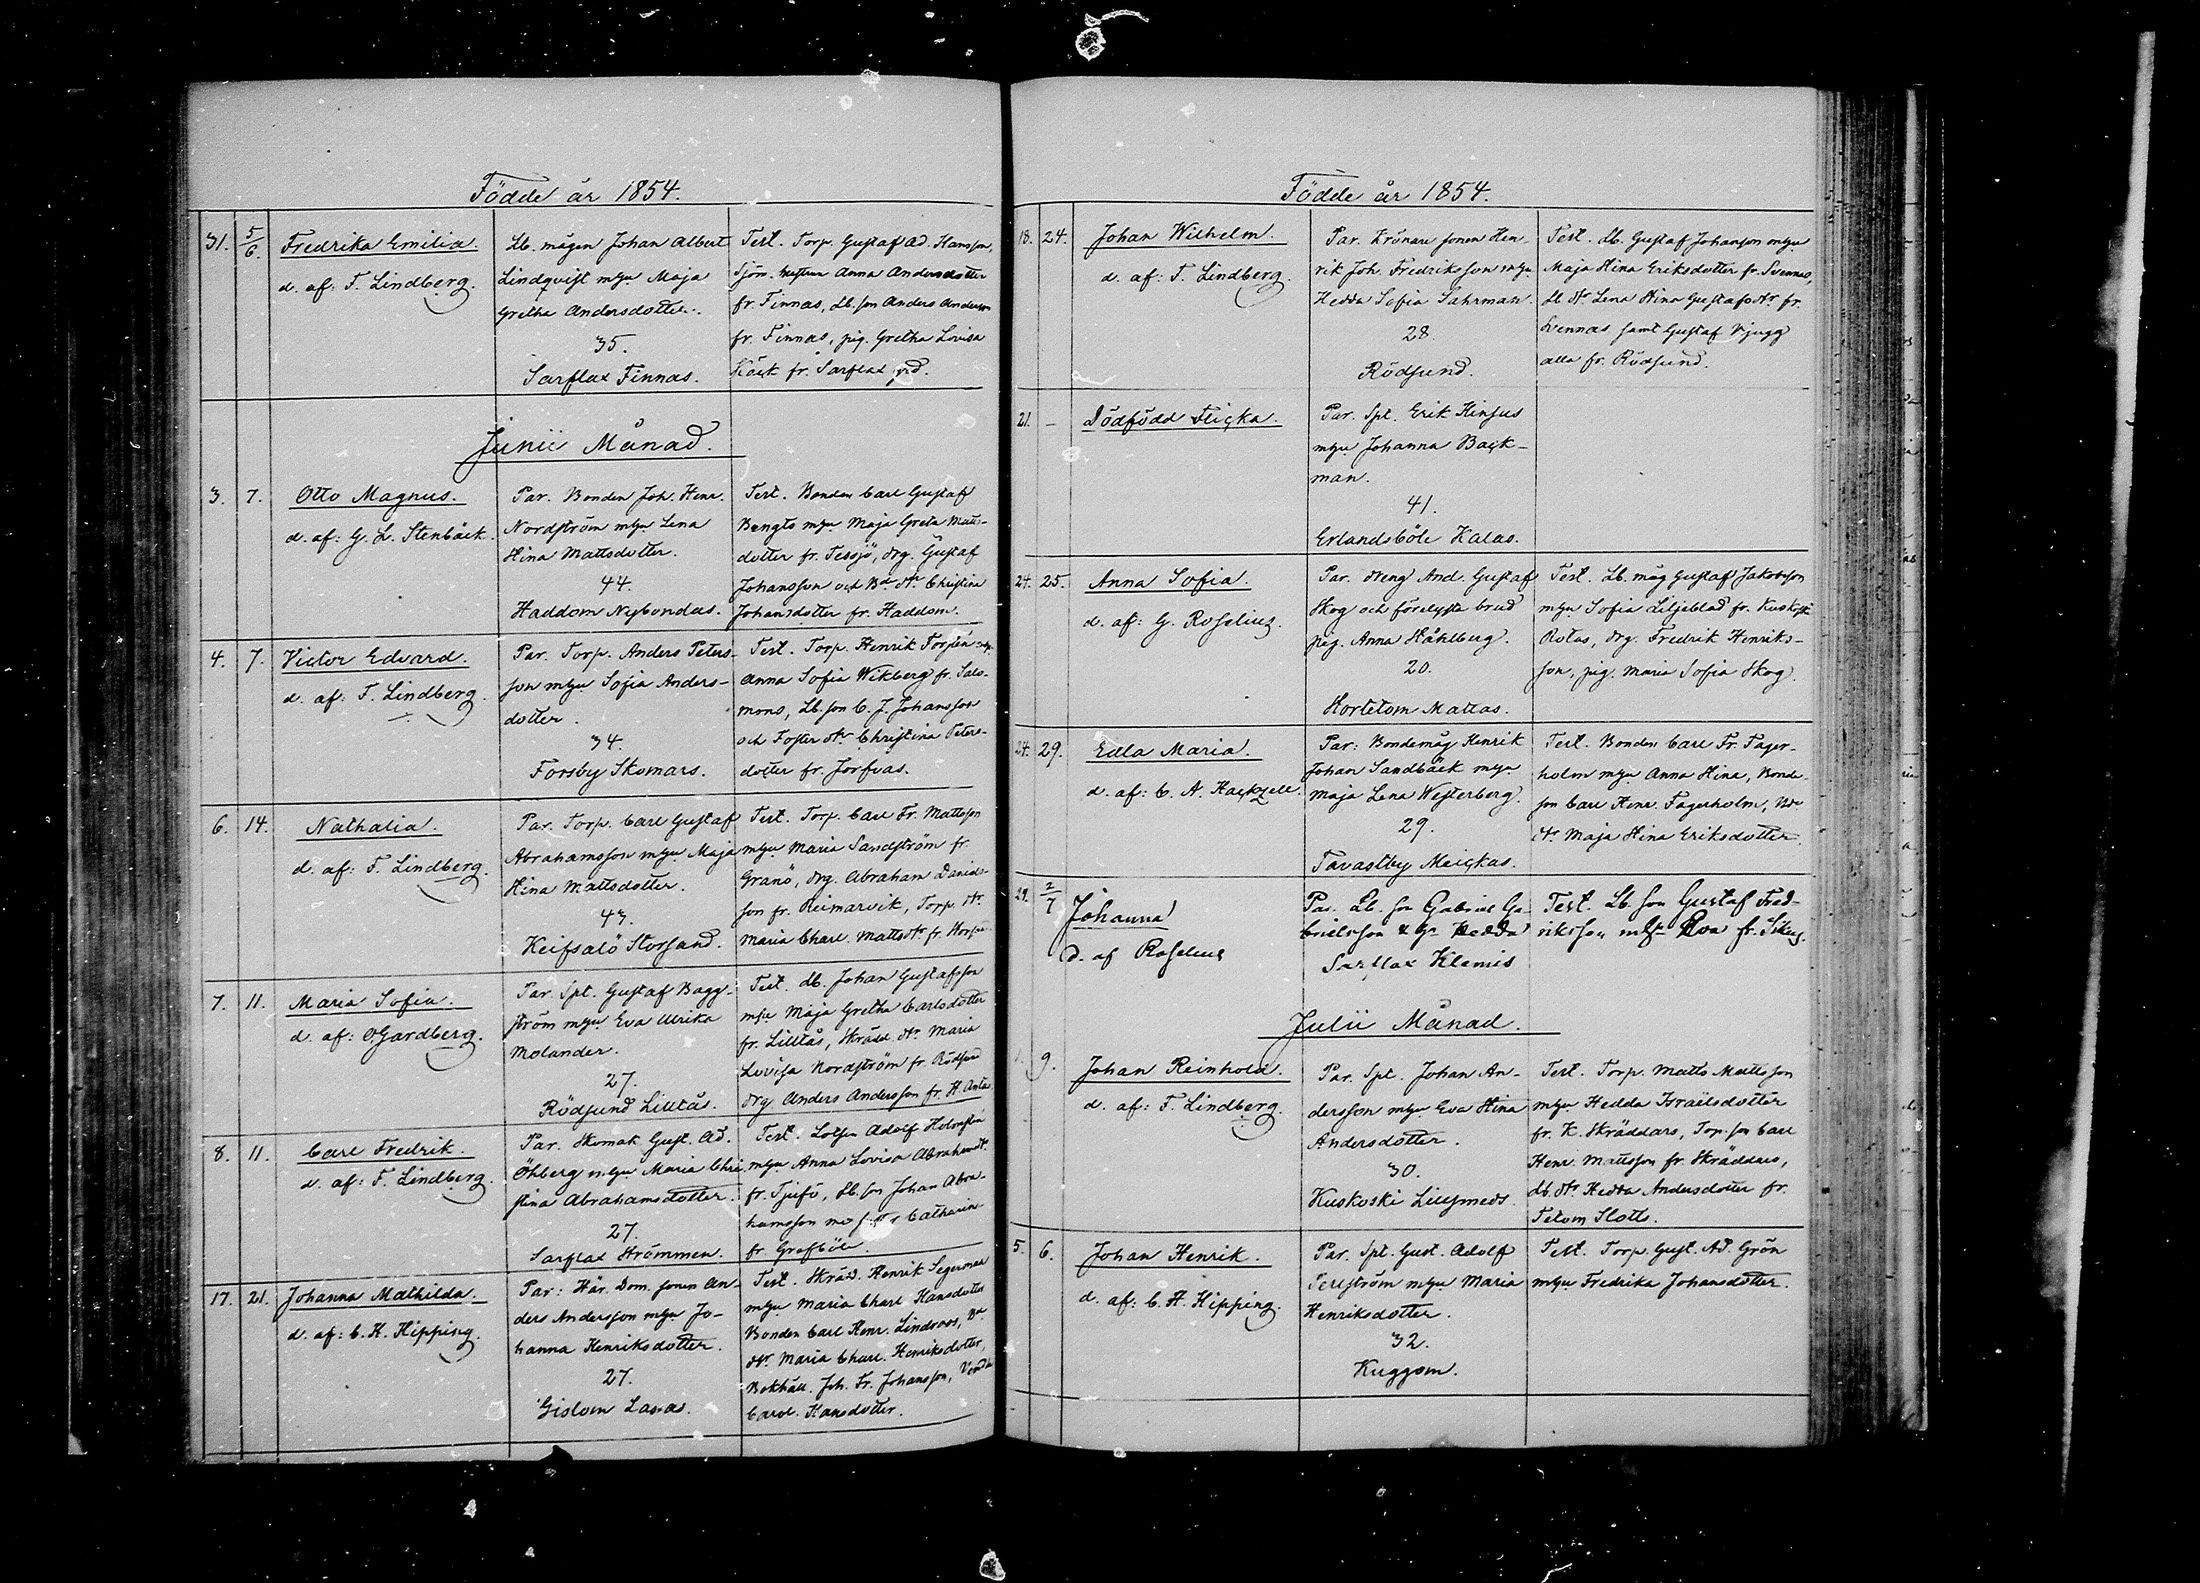 Födde år 1854.
31. 5/6. Fredrika Emilia.
d. af: F. Lindberg.
Lb. mågen Johan Albert
Lindqvist m hu Maja
Gretha Andersdotter.
35.
Sarflax Finnas.
Test. Torp. Gustaf Ad. Hansson,
Sjöm. hustrun Anna Andersdotter
fr. Finnas, Lb. son Anders Andersson
fr. Finnas, pig. Gretha Lovisa
fr. Sarflax gd.
Junii Månad.
3. 7. Otto Magnus.
d. af: G. L. Stenbäck.
Par. Bonden Joh. Henr.
Nordström m hu Lena
Stina Mattsdotter.
44.
Haddom Nybondas.
Test. Bonden Carl Gustaf
Bengts m hu Maja Greta Matts-
dotter fr. Tessjö, drg. Gustaf
Johansson och Bd dtr Christina
Johansdotter fr. Haddom.
4. 7. Victor Edvard.
d. af: F. Lindberg.
Par. Torp. Anders Peters-
son m hu Sofia Anders-
dotter.
34.
Forsby Skomars.
Test. Torp. Henrik Forstén m hu
Anna Sofia Wikberg fr. Salo-
mons, Lb. son C. J. Johansson
och Foster dtr Christina Peters-
dotter fr. Jorfvas.
6. 14. Nathalia.
d. af: F. Lindberg.
Par. Torp. Carl Gustaf
Abrahamsson m hu Maja
Stina Mattsdotter.
43.
Keifsalö Storsand.
Test. Torp. Carl Fr. Mattsson
m hu Maria Sandström fr.
Granö, drg. Abraham Davids-
son fr. Reimarvik, Torp. dtr
Maria Charl. Mattsdtr fr.
7. 11. Maria Sofia.
d. af: O Gardberg.
Par. Spt. Gustaf Bagg-
ström m hu Eva Ulrika
Molander.
27.
Rödsund Lilltås.
Test. db. Johan Gustafsson
m hu Maja Gretha Carlsdotter
fr. Lilltås, Skrädd. dtr Maria
Lovisa Nordström fr. Rödsund
drg Anders Andersson fr. H. Ants
8. 11. Carl Fredrik.
d. af: F. Lindberg.
Par. Skomak. Gust. Ad.
Öhberg m hu Maria Chri-
stina Abrahamsdotter.
27.
Sarflax Strömmen.
Test. Lotsen Adolf Holmstén
m hu Anna Lovisa Abrahamsdtr
fr. Tjufö, Lb. son Johan Abra-
hamsson med Catharina
fr. Grefböle.
17. 21. Johanna Mathilda.
d. af: C. H. Hipping.
Par: Här. Dom. sonen An-
ders Andersson m hu Jo-
hanna Henriksdotter.
27.
Gislom Lassas.
Test. Skräd. Henrik Segerman
m hu Maria Charl Hansdotter
Bonden Carl Henr. Lindroos, Bd
dtr Maria Charl. Henriksdotter,
Bokhåll. Joh. Fr. Johansson,
Carol. Hansdotter.
Födde år 1854.
18. 24. Johan Wilhelm.
d. af: F. Lindberg.
Par. Krönare sonen Hen-
rik Joh. Fredriksson m hu
Hedda Sofia Sahrman.
28.
Rödsund.
Test. db. Gustaf Johanson m hu
Maja Stina Eriksdotter fr. Svennas,
db dtr Lena Stina Gustafsdtr fr.
Svennas samt Gustaf Vjugg
alla fr. Rödsund.
21. – Dödfödd Flicka.
Par. Spt. Erik Hinsus
m hu Johanna Back-
man.
41.
Erlandsböle Kalas.
24. 25. Anna Sofia.
d. af: G. Roselius.
Par. dreng And. Gustaf
Skog och förelyste brud
pig. Anna Ståhlberg.
20.
Hortetom Mattas.
Test. Lb. måg Gustaf Jakobsson
m hu Sofia Liljeblad fr. Kuskoski
Rotas, drg. Fredrik Henriks-
son, pig. Maria Sofia Skog.
24. 29. Edla Maria.
d. af: C. A. Hackzell.
Par: Bondemåg Henrik
Johan Sandbäck m hu
Maja Lena Westerberg.
29.
Tavastby Meickas.
Test. Bonden Carl Fr. Fager-
holm m hu Anna Stina, Bonde-
son Carl Henr. Fagerholm, Bde
dtr Maja Stina Eriksdotter.
29. 2/7 Johanna
D. af Roselius
Par. Lb. son Gabriel Ga-
brielsson & hu Hedda
Sarflax Klemis
Test. Lb son Gustaf Fred-
riksson m h Eva fr.
Julii Månad.
1. 9. Johan Reinhold.
d. af: F. Lindberg.
Par. Spt. Johan An-
dersson m hu Eva Stina
Andersdotter.
30.
Kuskoski Lillsmeds.
Test. Torp. Matts Mattsson
m hu Hedda Israelsdotter
fr. K. Skräddars, Torp. son Carl
Henr. Mattsson fr. Skräddars,
db. dtr Hedda Andersdotter fr.
Tetom Slotts.
5. 6. Johan Henrik.
d. af: C. H. Hipping.
Par. Spt. Gust. Adolf
Perlström m hu Maria
Henriksdotter.
32.
Kuggom.
Test. Torp. Gust. Ad. Grön
m hu Fredrika Johansdotter.